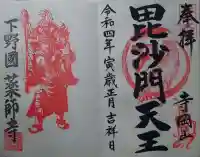 奉拝
寺岡山
毘沙門天王
令和四年寅歳正月吉祥日
下野國
薬師寺